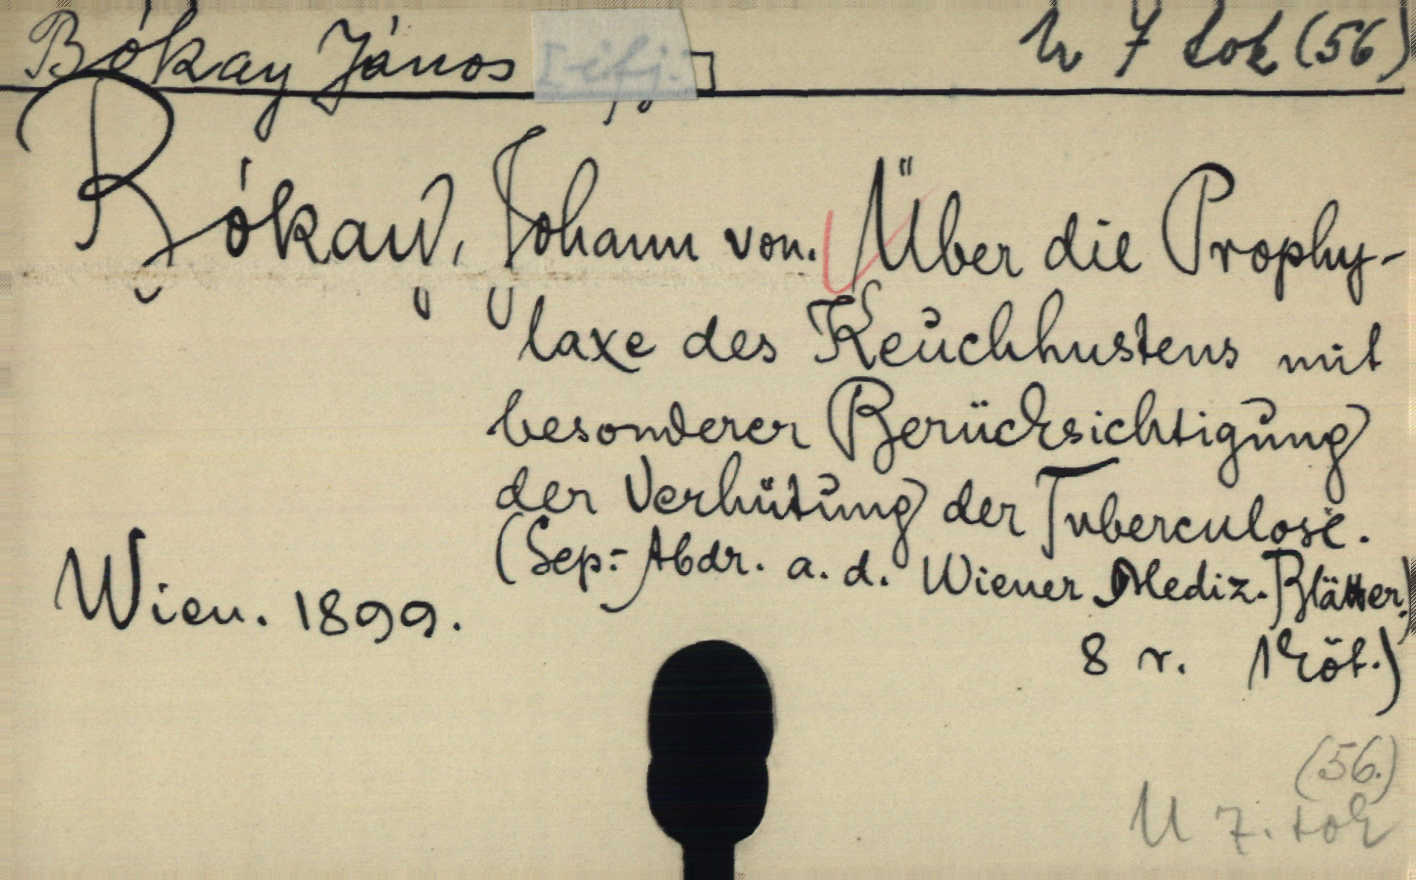 Bókay János I-ifj. U 7 tok (56)
Bókay, Johann von. Über die Prophy-
laxe des Keuchhustens mit
besonderer Berücksichtigung
der Verhütung der Tuberculose.
(Sep.-Abdr. a. d. Wiener Mediz. Blätter.)
Wien. 1899.
8 r. 1 köt.)
(56.)
U 7. tok